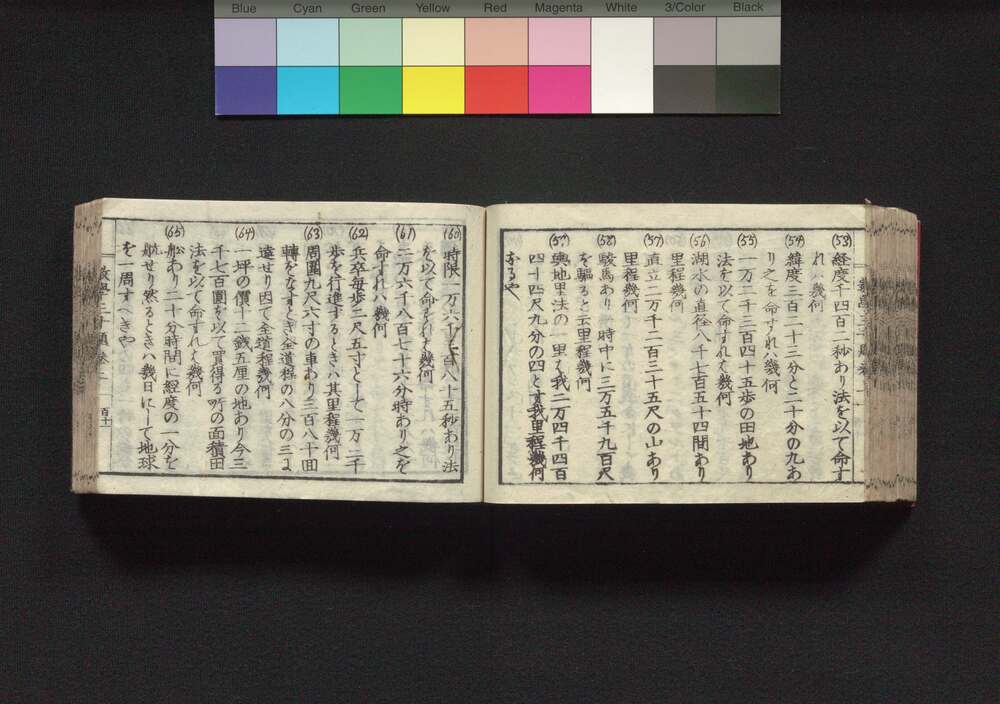 Blue Cyan Green Yellow Red Magenta White 3/Color Black
(53) 経度千四百二秒あり法を以て命す
れハ幾何
(54) 緯度三百二十三分と二十分の九あ
り之を命すれハ幾何
(55) 一万二千三百四十五歩の田地あり
法を以て命すれハ幾何
(56) 湖水の直径八千七百五十四間あり
里程幾何
(57) 直立二万千二百三十五尺の山あり
里程幾何
(58) 駿馬あり一時中に三万五千九百尺
を驅ると云里程幾何
(59) 輿地里法の一里ハ我二万四千四百
四十四尺九分の四とす我里程幾何
なるや
(60) 時限一万六千 百八十五秒あり法
を以て命すれハ幾何
(61) 二万六千八百七十六分時あり之を
命すれハ幾何
(62) 兵卒毎歩二尺五寸として一万二千
歩を行進するときハ其里程幾何
(63) 周圍九尺六寸の車あり三百八十回
轉をなすとき全道程の八分の三に
達せり因て全道程幾何
(64) 一坪の價十二錢五厘の地あり今三
千七百圓を以て買得る所の面積田
法を以て命すれハ幾何
(65) 舩あり二十分時間に経度の一分を
航せり然るときハ幾日にして地球
を一周すへきや
数學三千題 巻